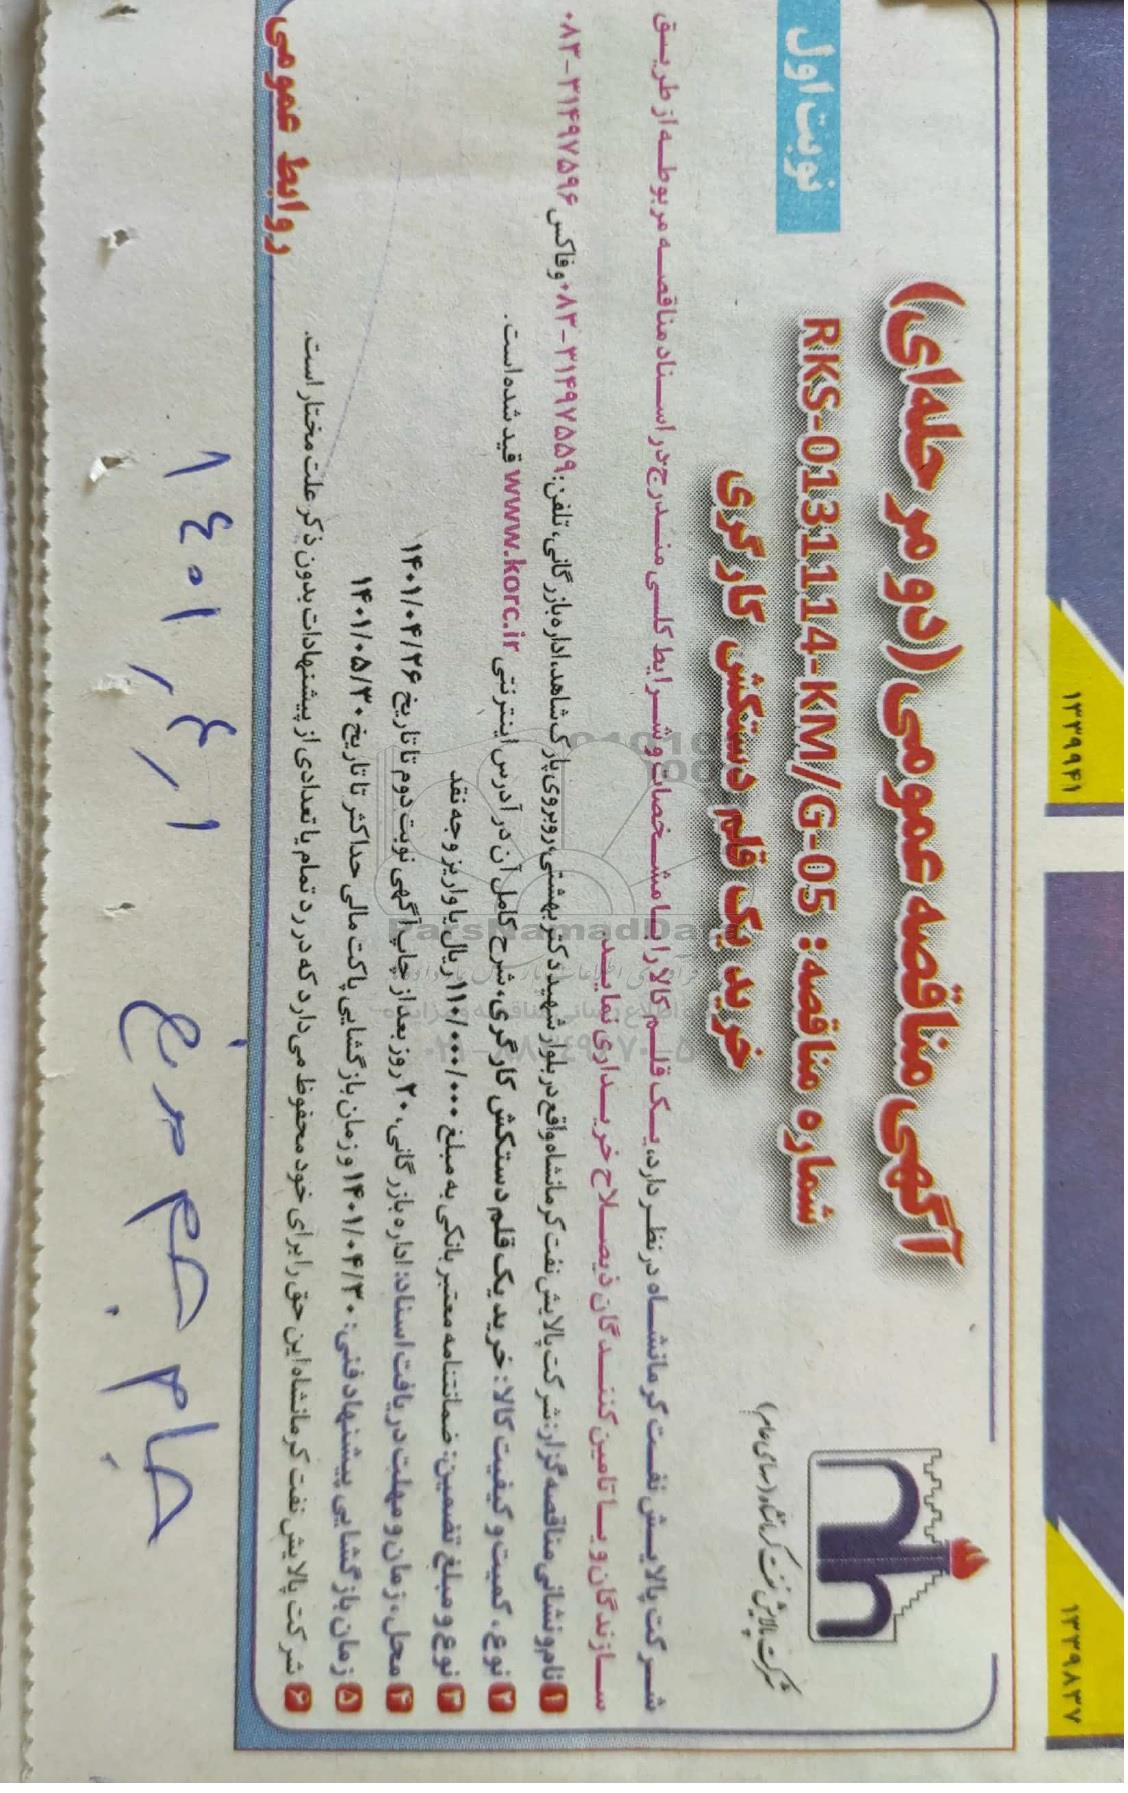 نوبت اول
آگهی مناقصه عمومی (دو مرحله‌ای)
شماره مناقصه: RKS-0131114-KM/G-05
خرید یک قلم دستکش کارگری
شرکت پالایش نفت کرمانشاه (سهامی عام)
شرکت پالایش نفت کرمانشاه در نظر دارد، یک قلم کالا را با مشخصات و شرایط کلی مندرج در اسناد مناقصه مربوطه از طریق
سازندگان و یا تامین کنندگان ذیصلاح خریداری نماید.
۱ نام و نشانی مناقصه گزار: شرکت پالایش نفت کرمانشاه واقع در بلوار شهید دکتر بهشتی، روبروی پارک شاهد، اداره بازرگانی، تلفن: ۳۱۴۹۷۵۵۹-۰۸۳ و فاکس ۳۱۴۹۷۵۹۶-۰۸۳
۲ نوع، کمیت و کیفیت کالا: خرید یک قلم دستکش کارگری، شرح کامل آن در آدرس اینترنتی www.korc.ir قید شده است.
۳ نوع و مبلغ تضمین: ضمانتنامه معتبر بانکی به مبلغ ۱۱۰/۰۰۰/۰۰۰ ریال یا واریز وجه نقد
۴ محل، زمان و مهلت دریافت اسناد: اداره بازرگانی، ۲۰ روز بعد از چاپ آگهی نوبت دوم تا تاریخ ۱۴۰۱/۰۴/۲۶
۵ زمان بازگشایی پیشنهاد فنی: ۱۴۰۱/۰۴/۳۰ و زمان بازگشایی پاکت مالی حداکثر تا تاریخ ۱۴۰۱/۰۵/۳۰
۶ شرکت پالایش نفت کرمانشاه این حق را برای خود محفوظ می‌دارد که در رد تمام یا تعدادی از پیشنهادات بدون ذکر علت مختار است.
روابط عمومی
۱۳۳۹۹۴۱
۱۳۳۹۸۳۷
ParsNamadData
جام جم ۱۴۰۱/۴/۱